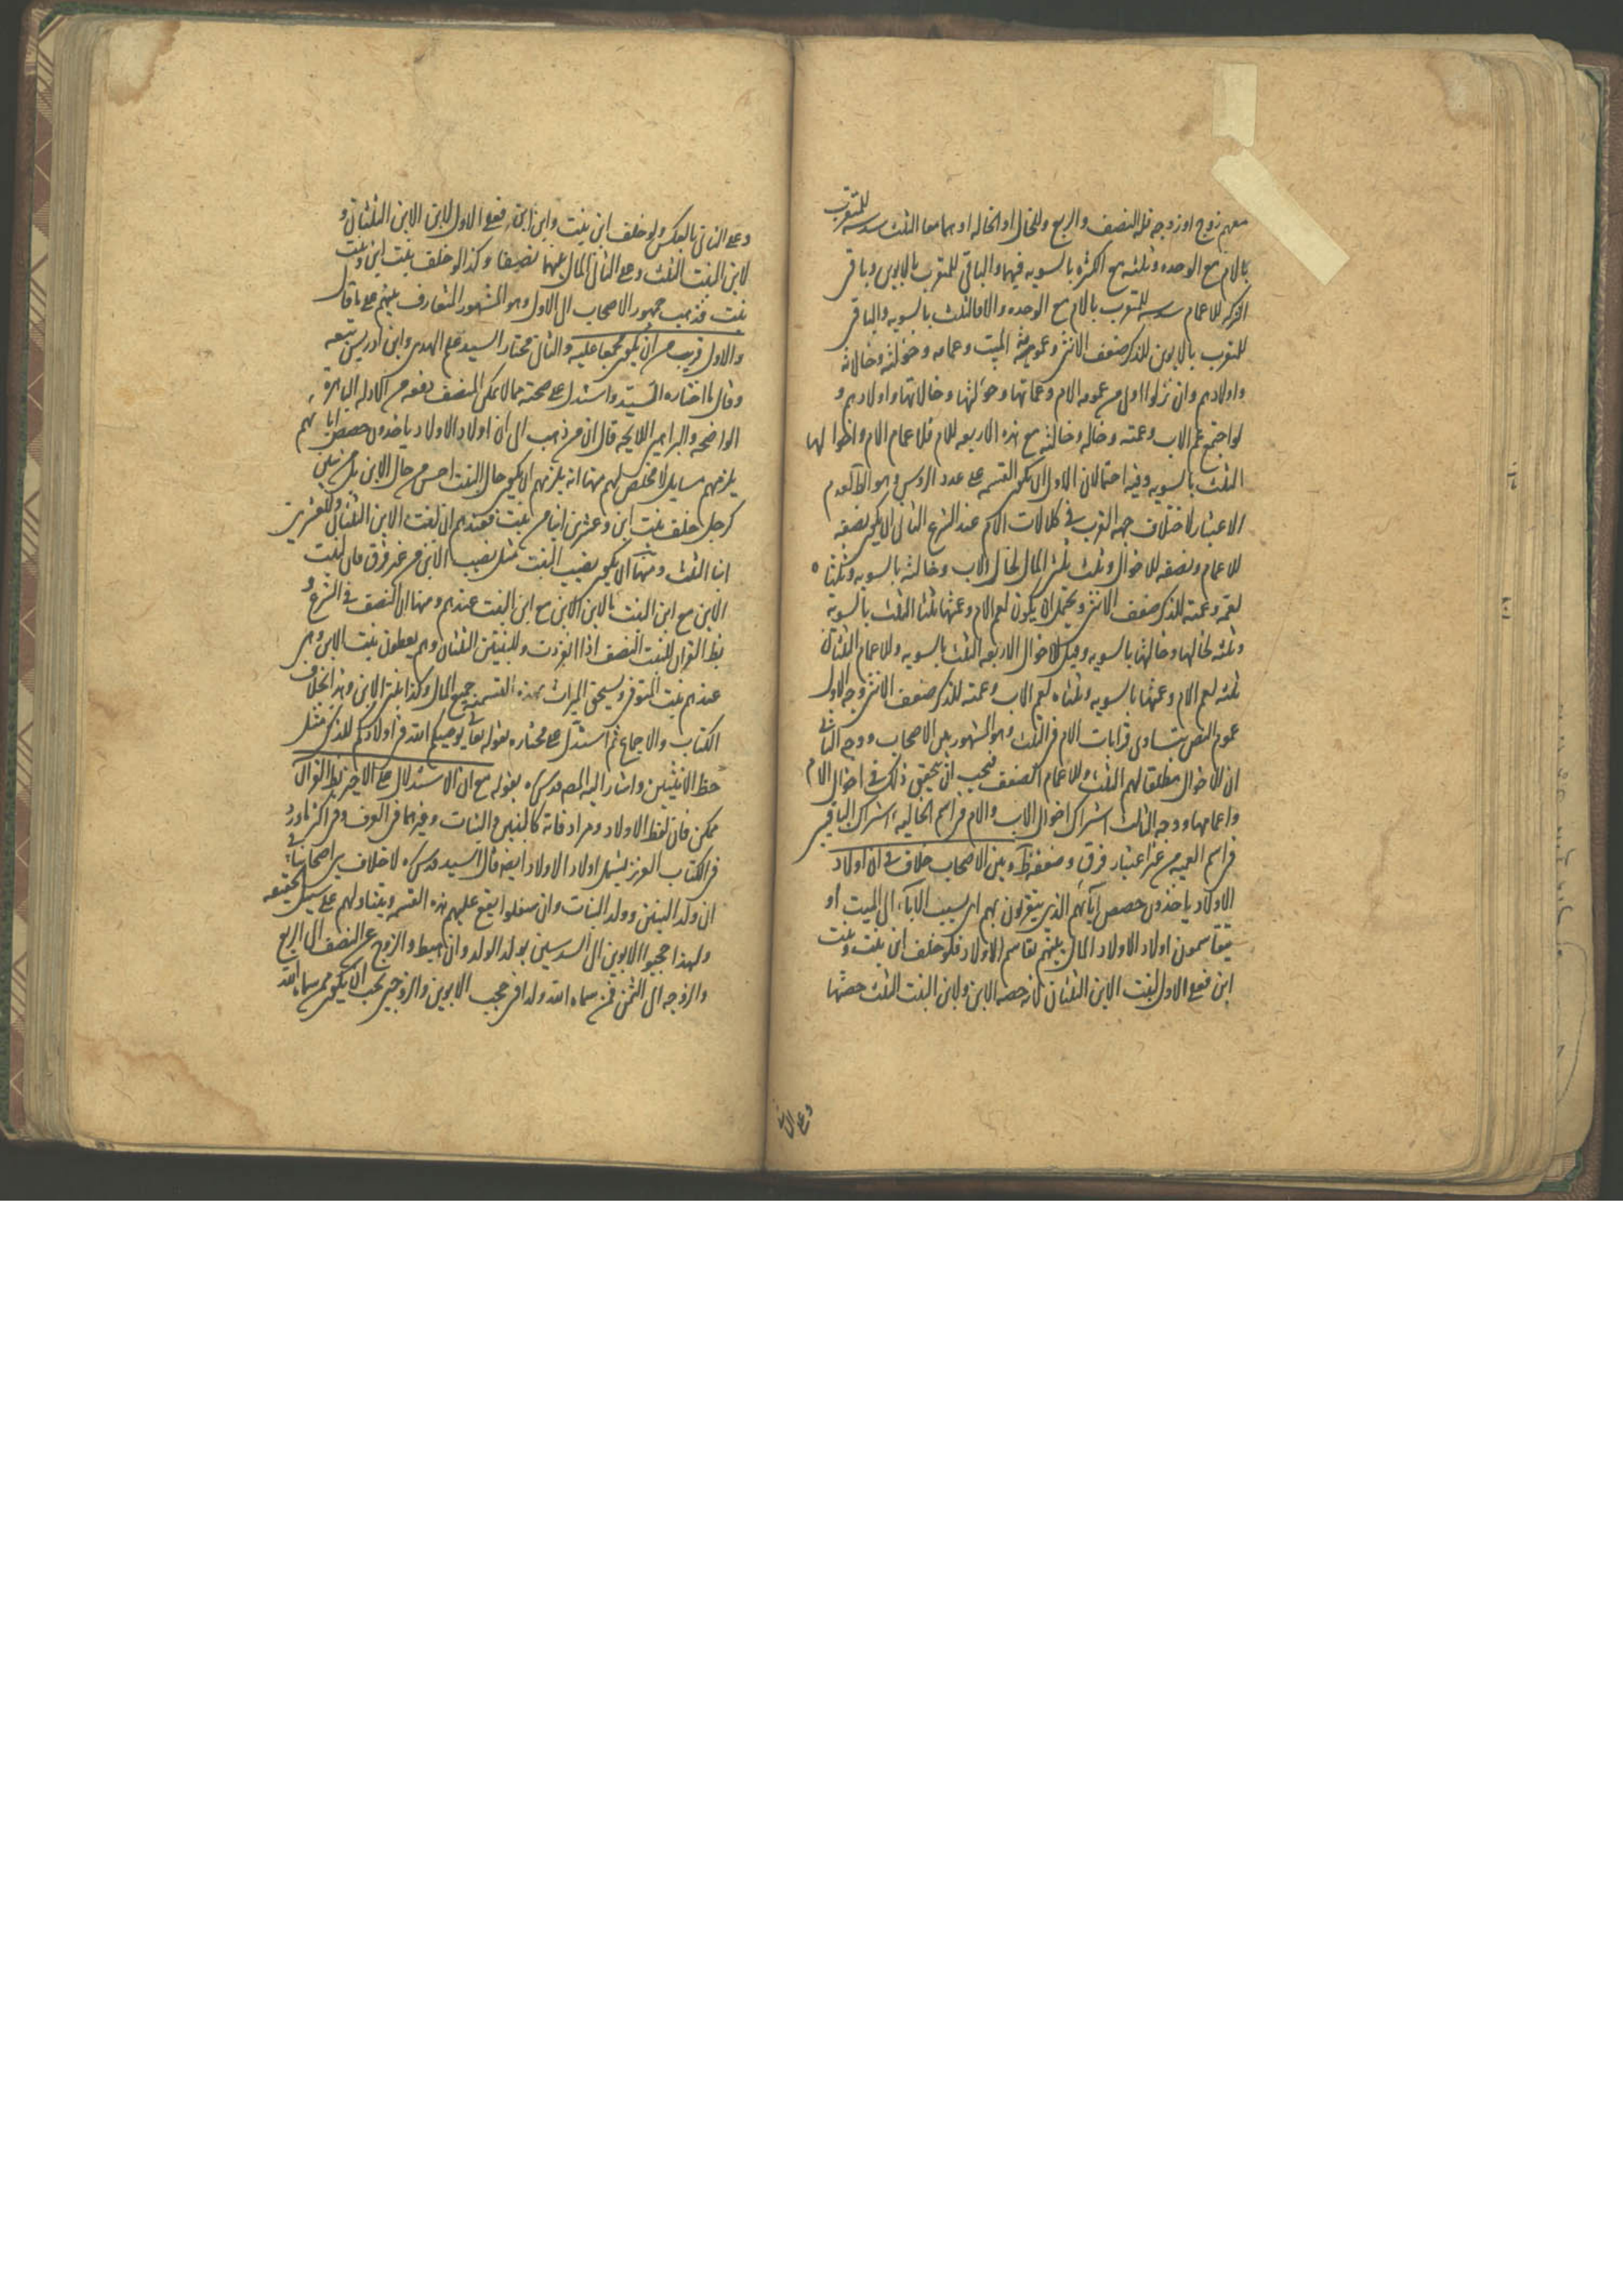 معهم زوج او زوجه فله النصف والربع وللخال او الخاله او هما معا الثلث سدسه للمتقرب
بالام مع الوحده وثلثه مع الكثره بالسويه فيهما والباقي للمتقرب بالابوين وباقي
التركه للاعمام سدسه للمتقرب بالام مع الوحده والا فالثلث بالسويه والباقي
للمتقرب بالابوين للذكر ضعف الانثى وعمومة الميت وعماته وخؤلته وخالاته
واولادهم وان نزلوا اولى من عمومه الام وعماتها وخؤلتها وخالاتها واولادهم و
لو اجتمع عم الاب وعمته وخاله وخالته مع هذه الاربعه للام فلاعمام الام واخوالها
الثلث بالسويه وفيه احتمالان الاول ان يكون القسمه على عدد الرؤس وهو الظ لعدم
الاعتبار لاختلاف جهه القرب في كلالات الام عند الشرع الثاني ان يكون نصفه
للاعمام ونصفه للاخوال وثلث ثلثي المال لخال الاب وخالته بالسويه وثلثاه
لعمه وعمته للذكر ضعف الانثى ويحتمل ان يكون لعم الام وعمتها ثلثا الثلث بالسويه
وثلثه لخالها وخالتها بالسويه وقيل للاخوال الاربعه الثلث بالسويه وللاعمام الثلثان
ثلثه لعم الام وعمتها بالسويه وثلثاه لعم الاب وعمته للذكر ضعف الانثى وجه الاول
عموم النص بتساوى قرابات الام في الثلث وهو المشهور بين الاصحاب ووجه الثاني
ان للاخوال مطلقا لهم الثلث وللاعمام الضعف فيجب ان يتحقق ذلك في اخوال الام
واعمامها ووجه الثالث اشتراك اخوال الاب والام في اسم الخاليه واشتراك الباقين
في اسم العميه من غير اعتبار فرق وضعفه ظ وبين الاصحاب خلاف في ان اولاد
الاولاد ياخذون حصص آبائهم الذين يتقربون بهم اى بسبب الآباء الى الميت او
يتقاسمون اولاد الاولاد المال بينهم تقاسم الاولاد فلو خلف ابن بنت وبنت
ابن فعلى الاول لبنت الابن الثلثان لانه حصه الابن ولابن البنت الثلث حصتها
وعلى الثاني
وعلى الثاني بالعكس ولو خلف ابن بنت وابن ابن فعلى الاول لابن الابن الثلثان و
لابن البنت الثلث وعلى الثاني المال بينهما نصفين وكذا لو خلف بنت ابن وبنت
بنت فذهب جمهور الاصحاب الى الاول وهو المشهور المتعارف بينهم على ما قال
والاول قريب من ان يكون مجمعا عليه والثاني مختار السيد علم الهدى وابن ادريس تبعه
وقال ما اختاره السيد واستدل على صحته بما لا يمكن المنصف دفعه من الادله الباهرة
الواضحه والبراهين اللايحه قال ان من ذهب الى ان اولاد الاولاد ياخذون حصص آبائهم
يلزمهم مسايل لا مخلص لهم منها انه يلزمهم ان يكون حال البنت احسن من حال الابن بل من
كرجل خلف بنت ابن وعشرين ابنا من بنت فعندهم ان لبنت الابن الثلثان وللعشرين
ابنا الثلث ومنها ان يكون نصيب البنت مثل نصيب الابن من غير فرق فان لبنت
الابن مع ابن البنت بالابن كالابن مع ابن البنت عندهم ومنها ان النصف في الشرع و
بظ القران للبنت النصف اذا انفردت وللبنتين الثلثان وهم يعطون بنت الابن وهى
عندهم بنت المتوفى ويستحق الميراث بهذه القسمه جميع المال وكذا بنتى الابن وهذا خلاف
الكتاب والاجماع ثم استدل على مختاره بقوله تعالى يوصيكم الله في اولادكم للذكر مثل
حظ الانثيين واشار اليه المص قدس سره بقوله مع ان الاستدلال على الاخير بظ القران
ممكن فان لفظ الاولاد ومرادفاته كالبنين والبنات وغيرهما في العرف وفي اكثر ما ورد
في الكتاب العزيز يشمل اولاد الاولاد ايضا قال السيد قدس سره لا خلاف بين اصحابنا في
ان ولد البنين وولد البنات وان سفلوا يقع عليهم هذه القسمه ويتناولهم على سبيل الحقيقه
ولهذا حجبوا الابوين الى السدسين بولد الولد وان هبط والزوج عن النصف الى الربع
والزوجه الى الثمن فمن سماه الله ولدا في حجب الابوين والزوجين يجب ان يكون ممن سماه الله